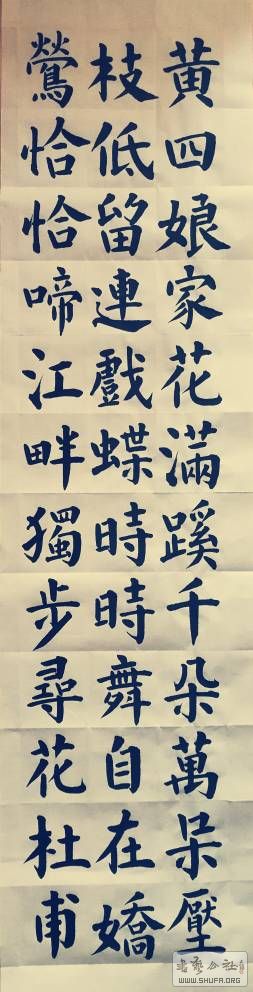 黄四娘家花滿蹊千朵萬朵壓
枝低留連戲蝶時時舞自在嬌
鶯恰恰啼江畔獨步尋花杜甫
书艺公社
WWW.SHUFA.ORG